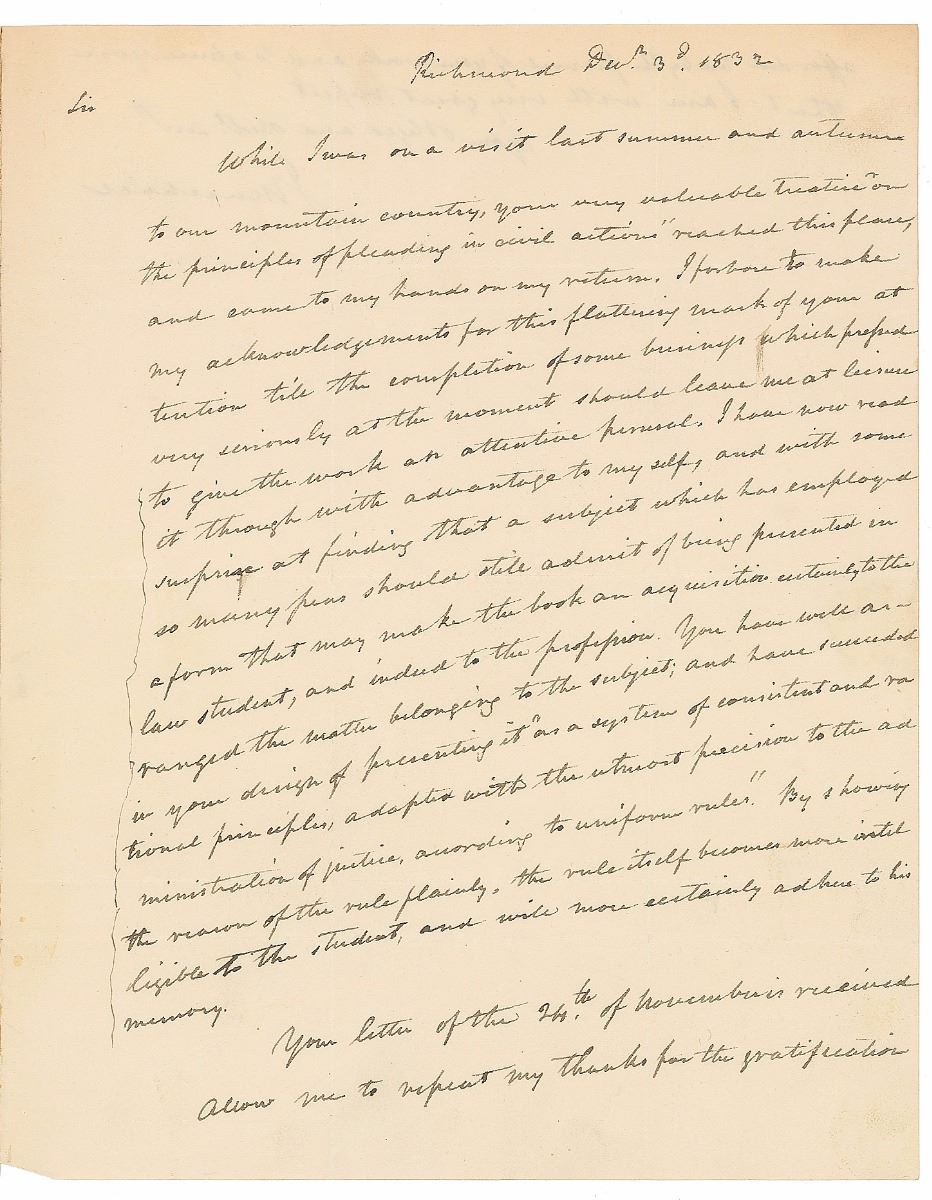 Richmond Decr. 3d. 1832
Sir
While I was on a visit last summer and autumn
to our mountain country, your very valuable treatise "on
the principles of pleading in civil actions" reached this place,
and came to my hands on my return. I forbore to make
my acknowledgements for this flattering mark of your at
tention till the completion of some business which pressed
very seriously at the moment should leave me at leisure
to give the work an attentive perusal. I have now read
it through with advantage to my self, and with some
surprize at finding that a subject which has employed
so many pens should still admit of being presented in
a form that may make the book an acquisition certainly to the
law student, and indeed to the profession. You have well ar-
ranged the matter belonging to the subject; and have succeeded
in your design of presenting it "as a system of consistent and ra
tional principles, adapted with the utmost precision to the ad
ministration of justice, according to uniform rules." By showing
the reason of the rule plainly, the rule itself becomes more intel
ligible to the student, and will more certainly adhere to his
memory.
Your letter of the 24th. of November is received
Allow me to repeat my thanks for the gratification